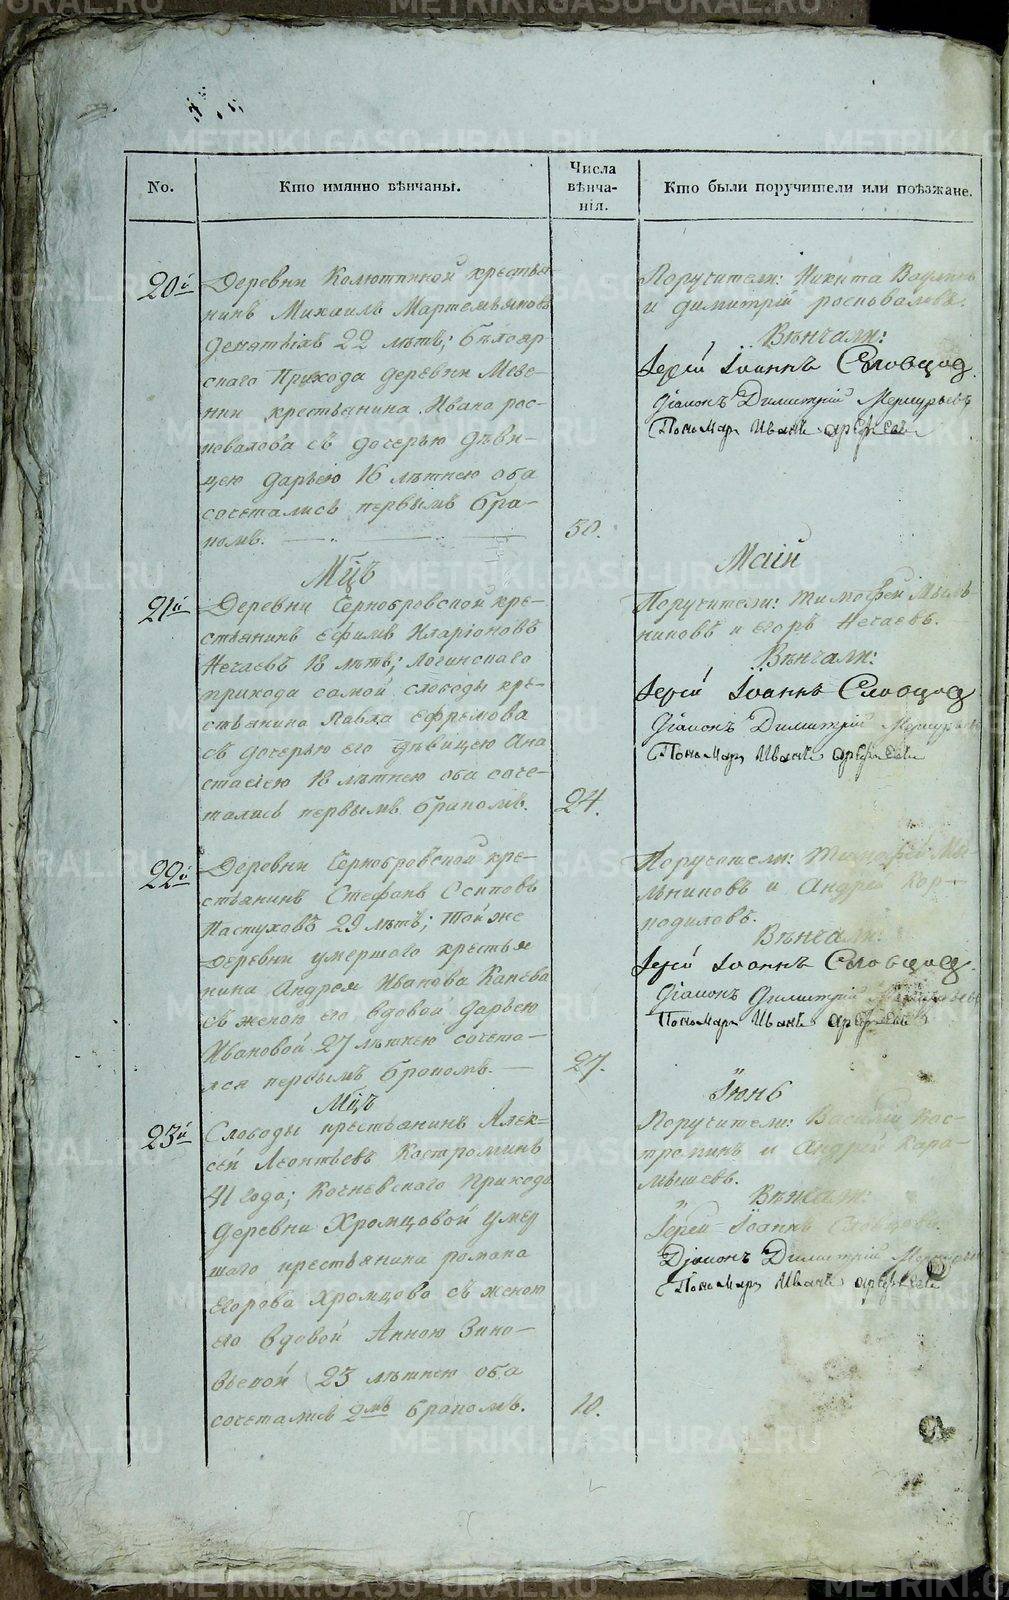 No.
Кто имянно вѣнчаны.
Числа
вѣнча-
нія.
Кто были поручители или поѣзжане.
20й
Деревни Колюткиной крестья
нинъ Михаилъ Мартемьяновъ
Девятыхъ 22 лѣтъ; бѣлояр-
скаго прихода деревни Мезе-
нки крестьянина Ивана рас-
повалова съ дочерью дѣви-
цею дарьею 16 лѣтнею оба
сочетались первымъ бра-
комъ.
30.
Поручители: Никита
и димитрій росповаловъ.
Вѣнчали:
Іерей Іоаннъ Словцовъ
Діаконъ Димитрій Меркурьевъ
Пономарь Иванъ
Мцъ
Маій
21й
Деревни Чернобровской кре-
стьянинъ ефимъ Иларіоновъ
Нечаевъ 18 лѣтъ; логинскаго
прихода самой слободы кре-
стьянина Павла ефремова
съ дочерью его дѣвицею Ана
стасіею 18 лѣтнею оба соче-
тались первымъ бракомъ.
24.
Поручители: тимофей Мыль
никовъ и егоръ Нечаевъ.
Вѣнчали:
Іерей Іоаннъ Словцовъ
Діаконъ Димитрій Меркурьевъ
Пономарь Иванъ
22й
Деревни Чернобровской кре-
стьянинъ Стефанъ Осиповъ
Пастуховъ 29 лѣтъ; той же
деревни умершаго крестья
нина Андрея Иванова Канева
съ женою его вдовой дарьею
Ивановой 27 лѣтнею сочета-
лся первымъ бракомъ.
27.
Поручители: Тимофей Мы
льниковъ и Андрей Кор-
кодиловъ.
Вѣнчали:
Іерей Іоаннъ Словцовъ
Діаконъ Димитрій Меркурьевъ
Пономарь Иванъ
Мцъ
Іюнь
23й
Слободы крестьянинъ Алек-
сей Леонтьевъ Костроминъ
41 года; Кочневскаго прихода
деревни Хромцовой умер
шаго крестьянина романа
егорова Хромцова съ женою
его вдовой Анною Зино-
вьевой 23 лѣтнею оба
сочетались 2мъ бракомъ.
10.
Поручители: Василій Кос-
троминъ и Андрей Кара-
мышевъ.
Вѣнчали:
Іерей Іоаннъ Словцовъ.
Діаконъ Димитрій Меркурьевъ
Пономарь Иванъ
METRIKI.GASO-URAL.RU